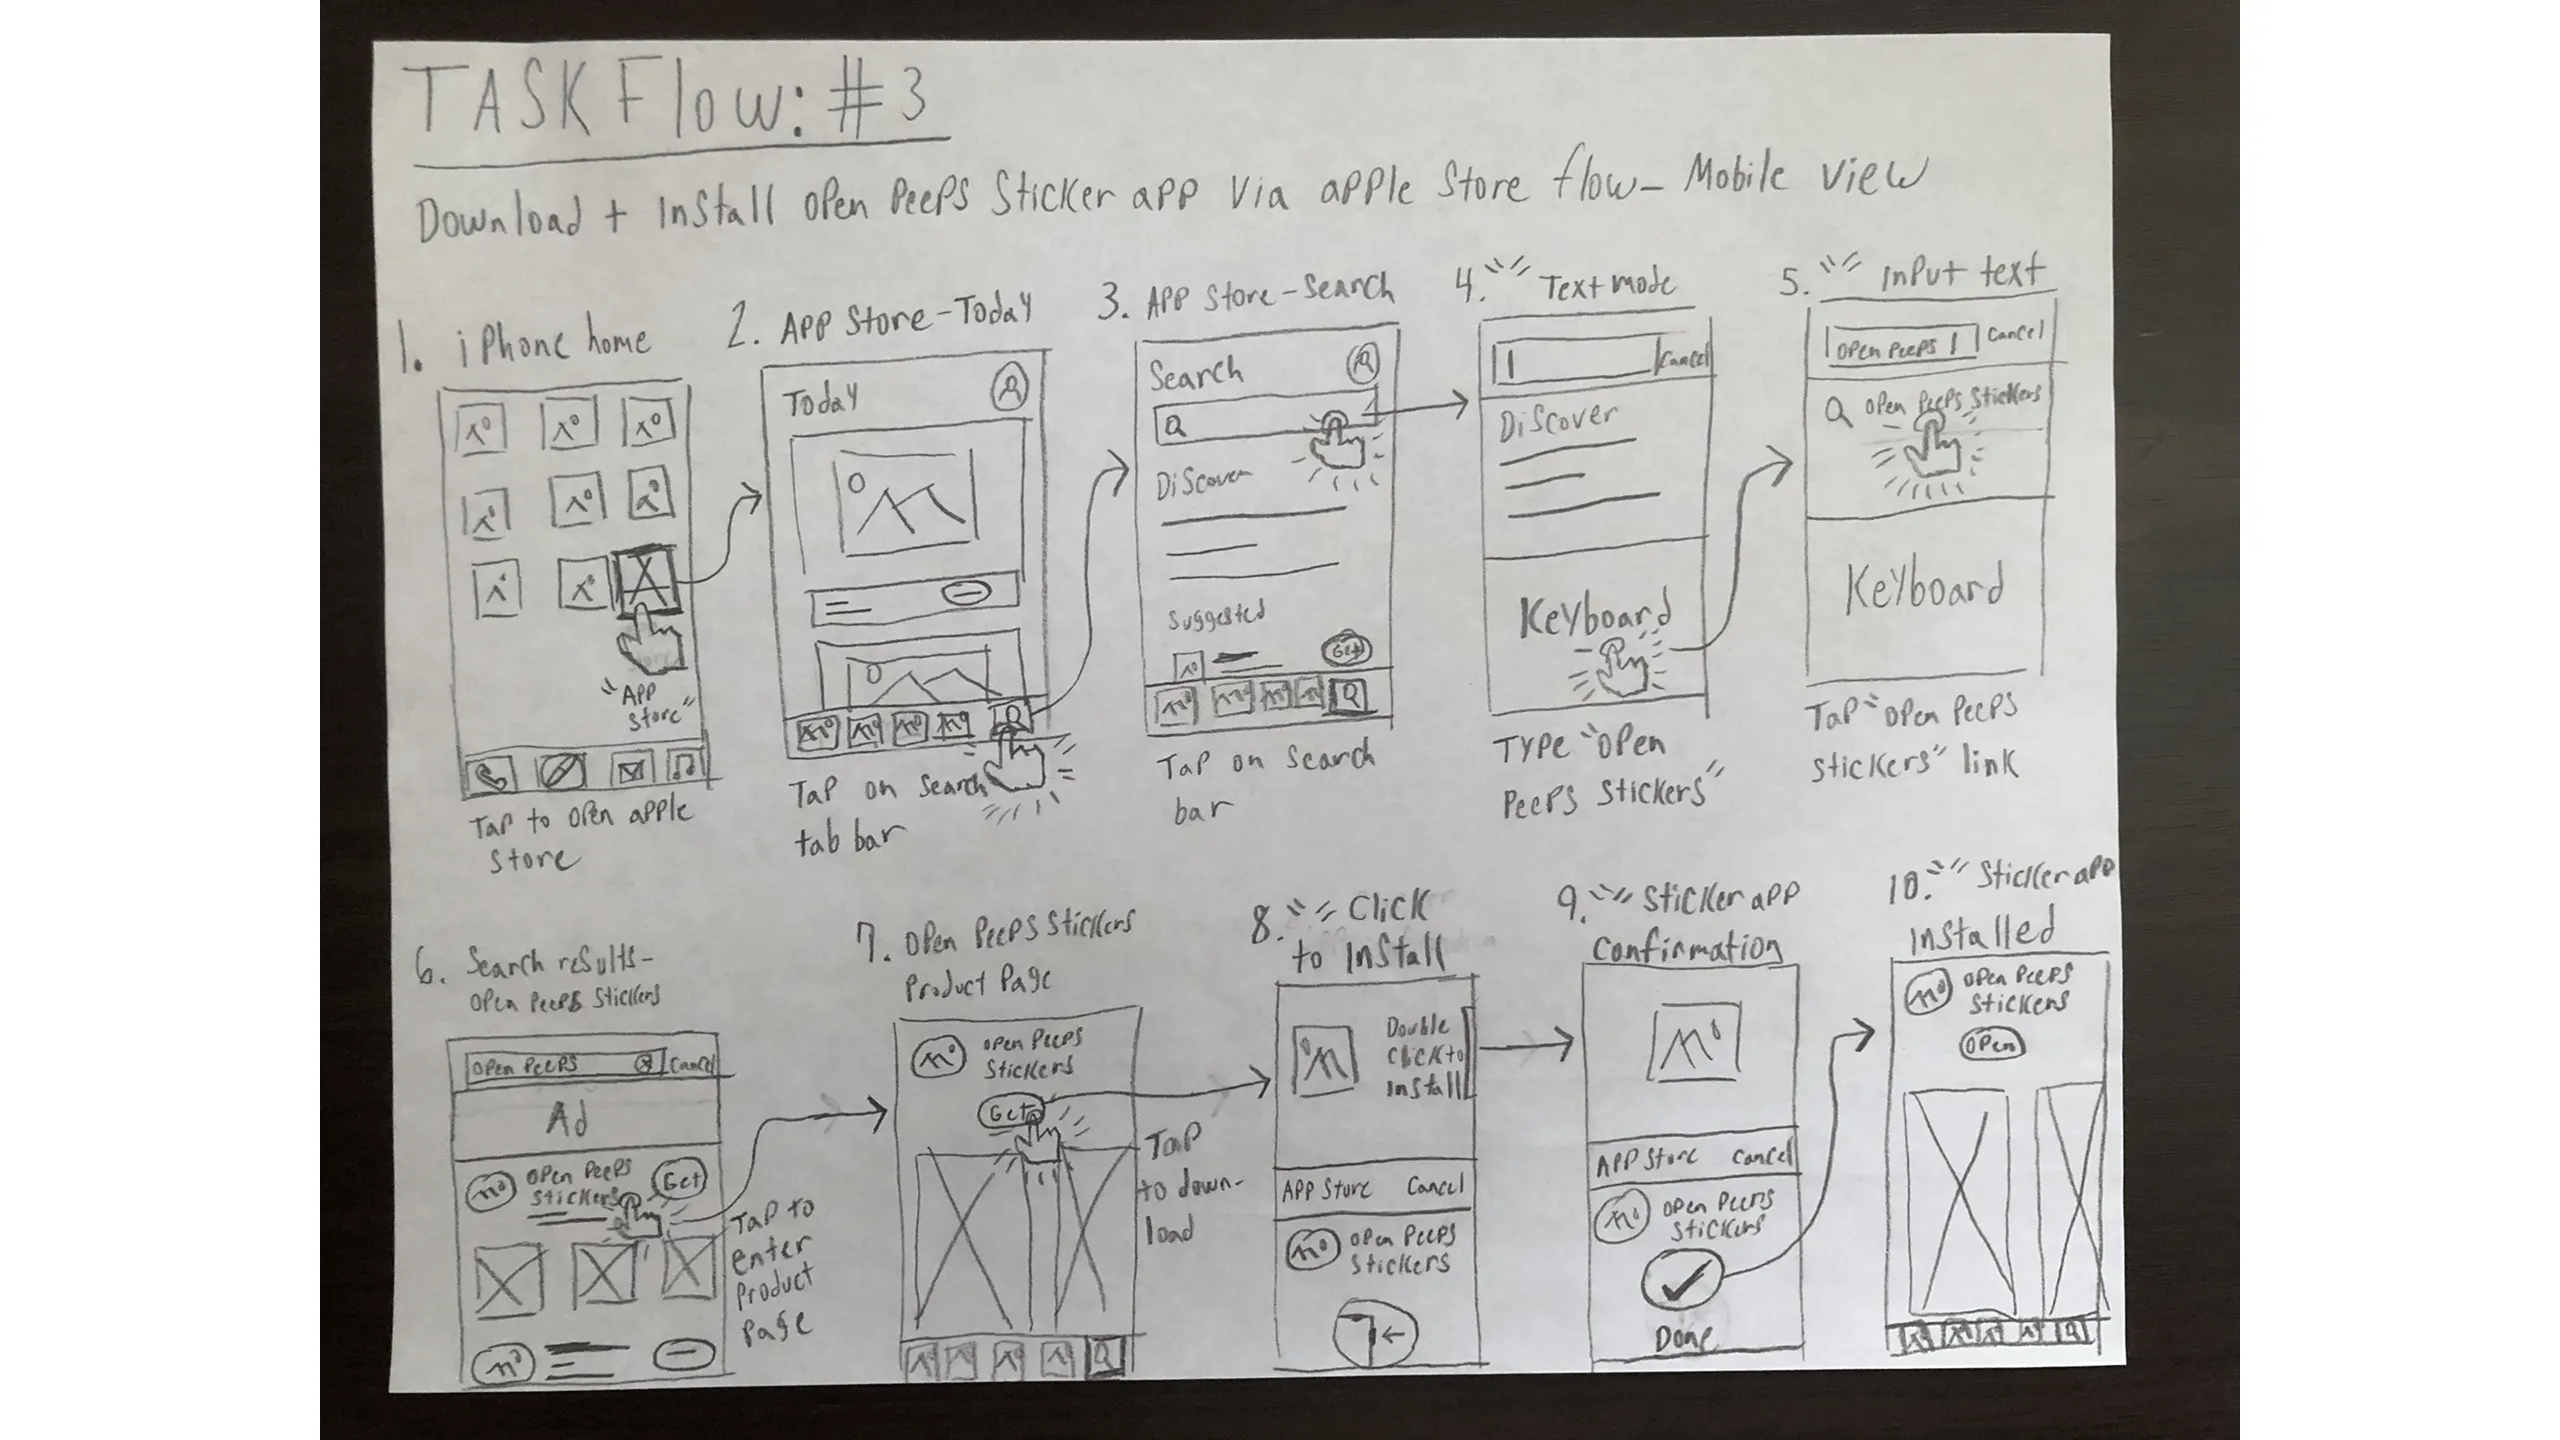 TASK Flow: #3
Download + Install open Peeps Sticker app Via apple Store flow- Mobile view
1. iPhone home
"App
Store"
Tap to open apple
store
2. App Store-Today
Today
Tap on search
tab bar
3. App Store-Search
Search
Discover
Suggested
Get
Tap on Search
bar
4. " " Text mode
Cancel
Discover
Keyboard
Type "Open
Peeps Stickers"
5. " " Input text
Open Peeps
Cancel
Open Peeps Stickers
Keyboard
Tap "Open Peeps
stickers" link
6. Search results-
Open Peeps Stickers
Open Peeps
Cancel
Ad
Open Peeps
Stickers
Get
Tap to
enter
Product
Page
7. Open Peeps Stickers
Product Page
Open Peeps
Stickers
Get
Tap
to down-
load
8. " " Click
to Install
Double
Click to
Install
App Store Cancel
Open Peeps
Stickers
9. " " Sticker app
Confirmation
App Store Cancel
Open Peeps
Stickers
Done
10. " " Sticker app
Installed
Open Peeps
Stickers
Open